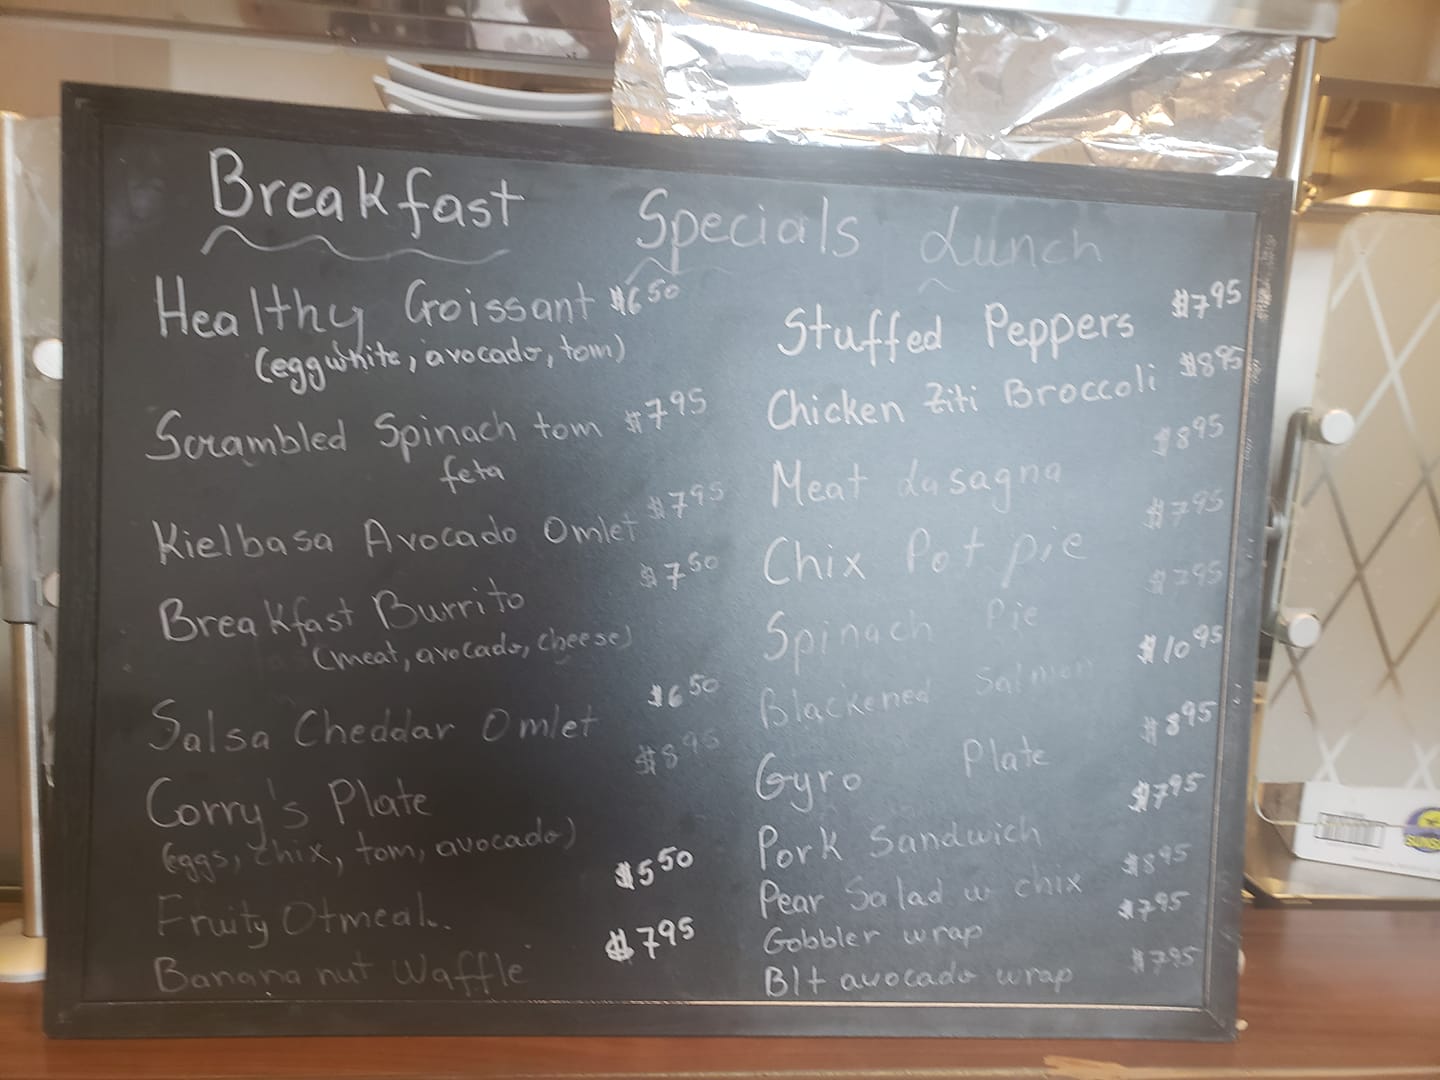 Breakfast Specials Lunch
Healthy Croissant $6.50
(eggwhite, avocado, tom)
Scrambled Spinach tom $7.95
feta
Kielbasa Avocado Omlet $7.95
Breakfast Burrito $7.50
(meat, avocado, cheese)
Salsa Cheddar Omlet $6.50
Corry's Plate $8.95
(eggs, chix, tom, avocado)
Fruity Otmeal. $5.50
Banana nut Waffle $7.95
Stuffed Peppers $7.95
Chicken Ziti Broccoli $8.95
Meat Lasagna $8.95
Chix Pot pie $7.95
Spinach Pie $7.95
Blackened Salmon $10.95
Gyro Plate $8.95
Pork Sandwich $7.95
Pear Salad w chix $8.95
Gobbler wrap $7.95
Blt avocado wrap $7.95